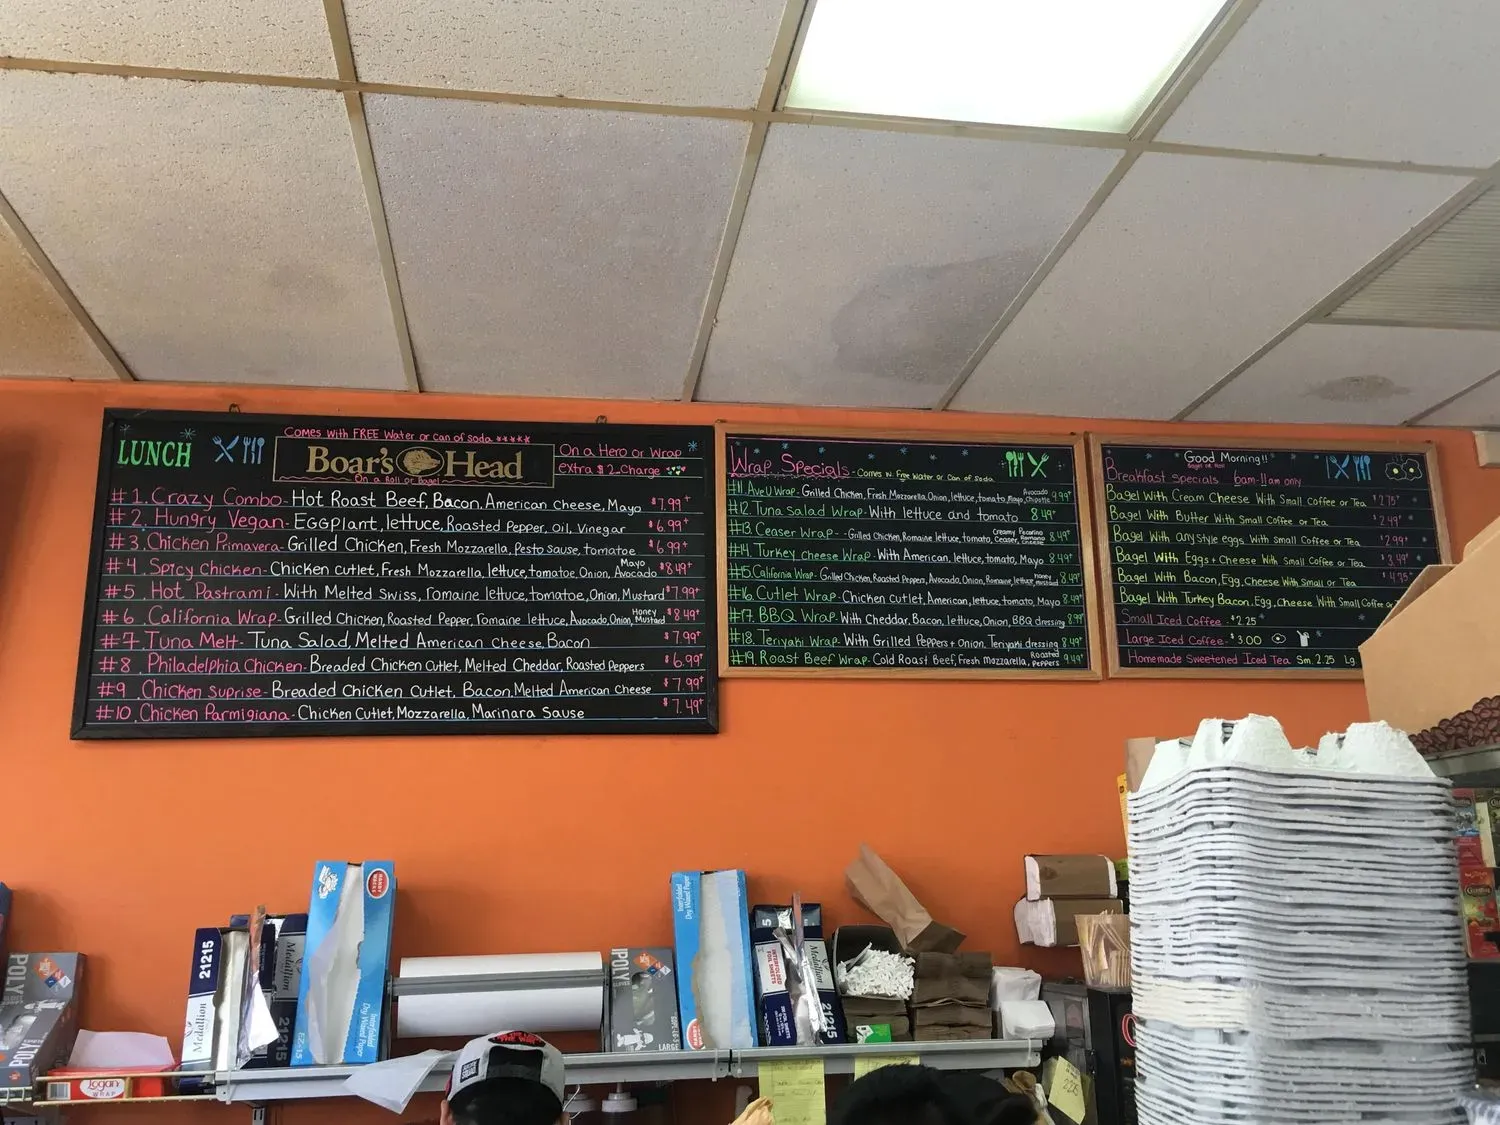 Comes with FREE Water or can of soda
LUNCH
Boar's Head
On a Roll or Bagel
On a Hero or Wrap
extra $2 Charge
#1. Crazy Combo - Hot Roast Beef, Bacon, American Cheese, Mayo $7.99+
#2. Hungry Vegan - EGGplant, lettuce, Roasted Pepper, Oil, Vinegar $6.99+
#3. Chicken Primavera - Grilled Chicken, Fresh Mozzarella, Pesto sause, tomatoe $6.99+
#4. Spicy Chicken - Chicken cutlet, Fresh Mozzarella, lettuce, tomatoe, Onion, Mayo Avocado $8.49+
#5. Hot Pastrami - With Melted Swiss, romaine lettuce, tomatoe, Onion, Mustard $7.99+
#6. California Wrap - Grilled Chicken, Roasted Pepper, romaine lettuce, Avocado, Onion, Honey Mustard $8.49+
#7. Tuna Melt - Tuna Salad, Melted American Cheese, Bacon $7.99+
#8. Philadelphia Chicken - Breaded Chicken Cutlet, Melted Cheddar, Roasted Peppers $6.99+
#9. Chicken Suprise - Breaded Chicken Cutlet, Bacon, Melted American Cheese $7.99+
#10. Chicken Parmigiana - Chicken Cutlet, Mozzarella, Marinara Sause $7.49+
Wrap Specials - Comes w. Free Water or Can of Soda
#11. Ave U Wrap - Grilled Chicken, Fresh Mozzarella, Onion, lettuce, tomato, Mayo, Avocado Chipotle 9.99+
#12. Tuna Salad Wrap - With lettuce and tomato 8.49+
#13. Ceaser Wrap - Grilled Chicken, Romaine lettuce, tomato, Creamy Ceaser, Pecorino Romano Cheese 8.49+
#14. Turkey cheese Wrap - With American, lettuce, tomato, Mayo 8.49+
#15. California Wrap - Grilled Chicken, Roasted Peppers, Avocado, Onion, Romaine, lettuce, honey mustard 8.49+
#16. Cutlet Wrap - Chicken Cutlet, American, lettuce, tomato, Mayo 8.49+
#17. BBQ Wrap - With Cheddar, Bacon, lettuce, Onion, BBQ dressing 8.99+
#18. Teriyaki Wrap - With Grilled Peppers + Onion, Teriyaki dressing 8.49+
#19. Roast Beef Wrap - Cold Roast Beef, Fresh Mozzarella, Roasted Peppers 9.49+
Good Morning!!
Bagel or Roll
Breakfast Specials 6am-11am only
Bagel With Cream Cheese With Small Coffee or Tea $2.75+
Bagel With Butter With Small Coffee or Tea $2.49+
Bagel With any style eggs With small Coffee or Tea $2.99+
Bagel With Eggs + Cheese With Small Coffee or Tea $3.49+
Bagel With Bacon, Egg, Cheese With Small or Tea $4.75+
Bagel With Turkey Bacon, Egg, Cheese With Small Coffee or
Small Iced Coffee - $2.25+
Large Iced Coffee - $3.00
Homemade Sweetened Iced Tea Sm. 2.25 Lg.
21215
Medallion
Medallion
21215
HANDY WACKS
Interfolded Dry Waxed Paper
EZ-15
POLY
LARGE
Interfolded Dry Waxed Paper
HANDY WACKS
INTERFOLDED FOIL SHEETS
Medallion
21215
POLY
Logan
WRAP